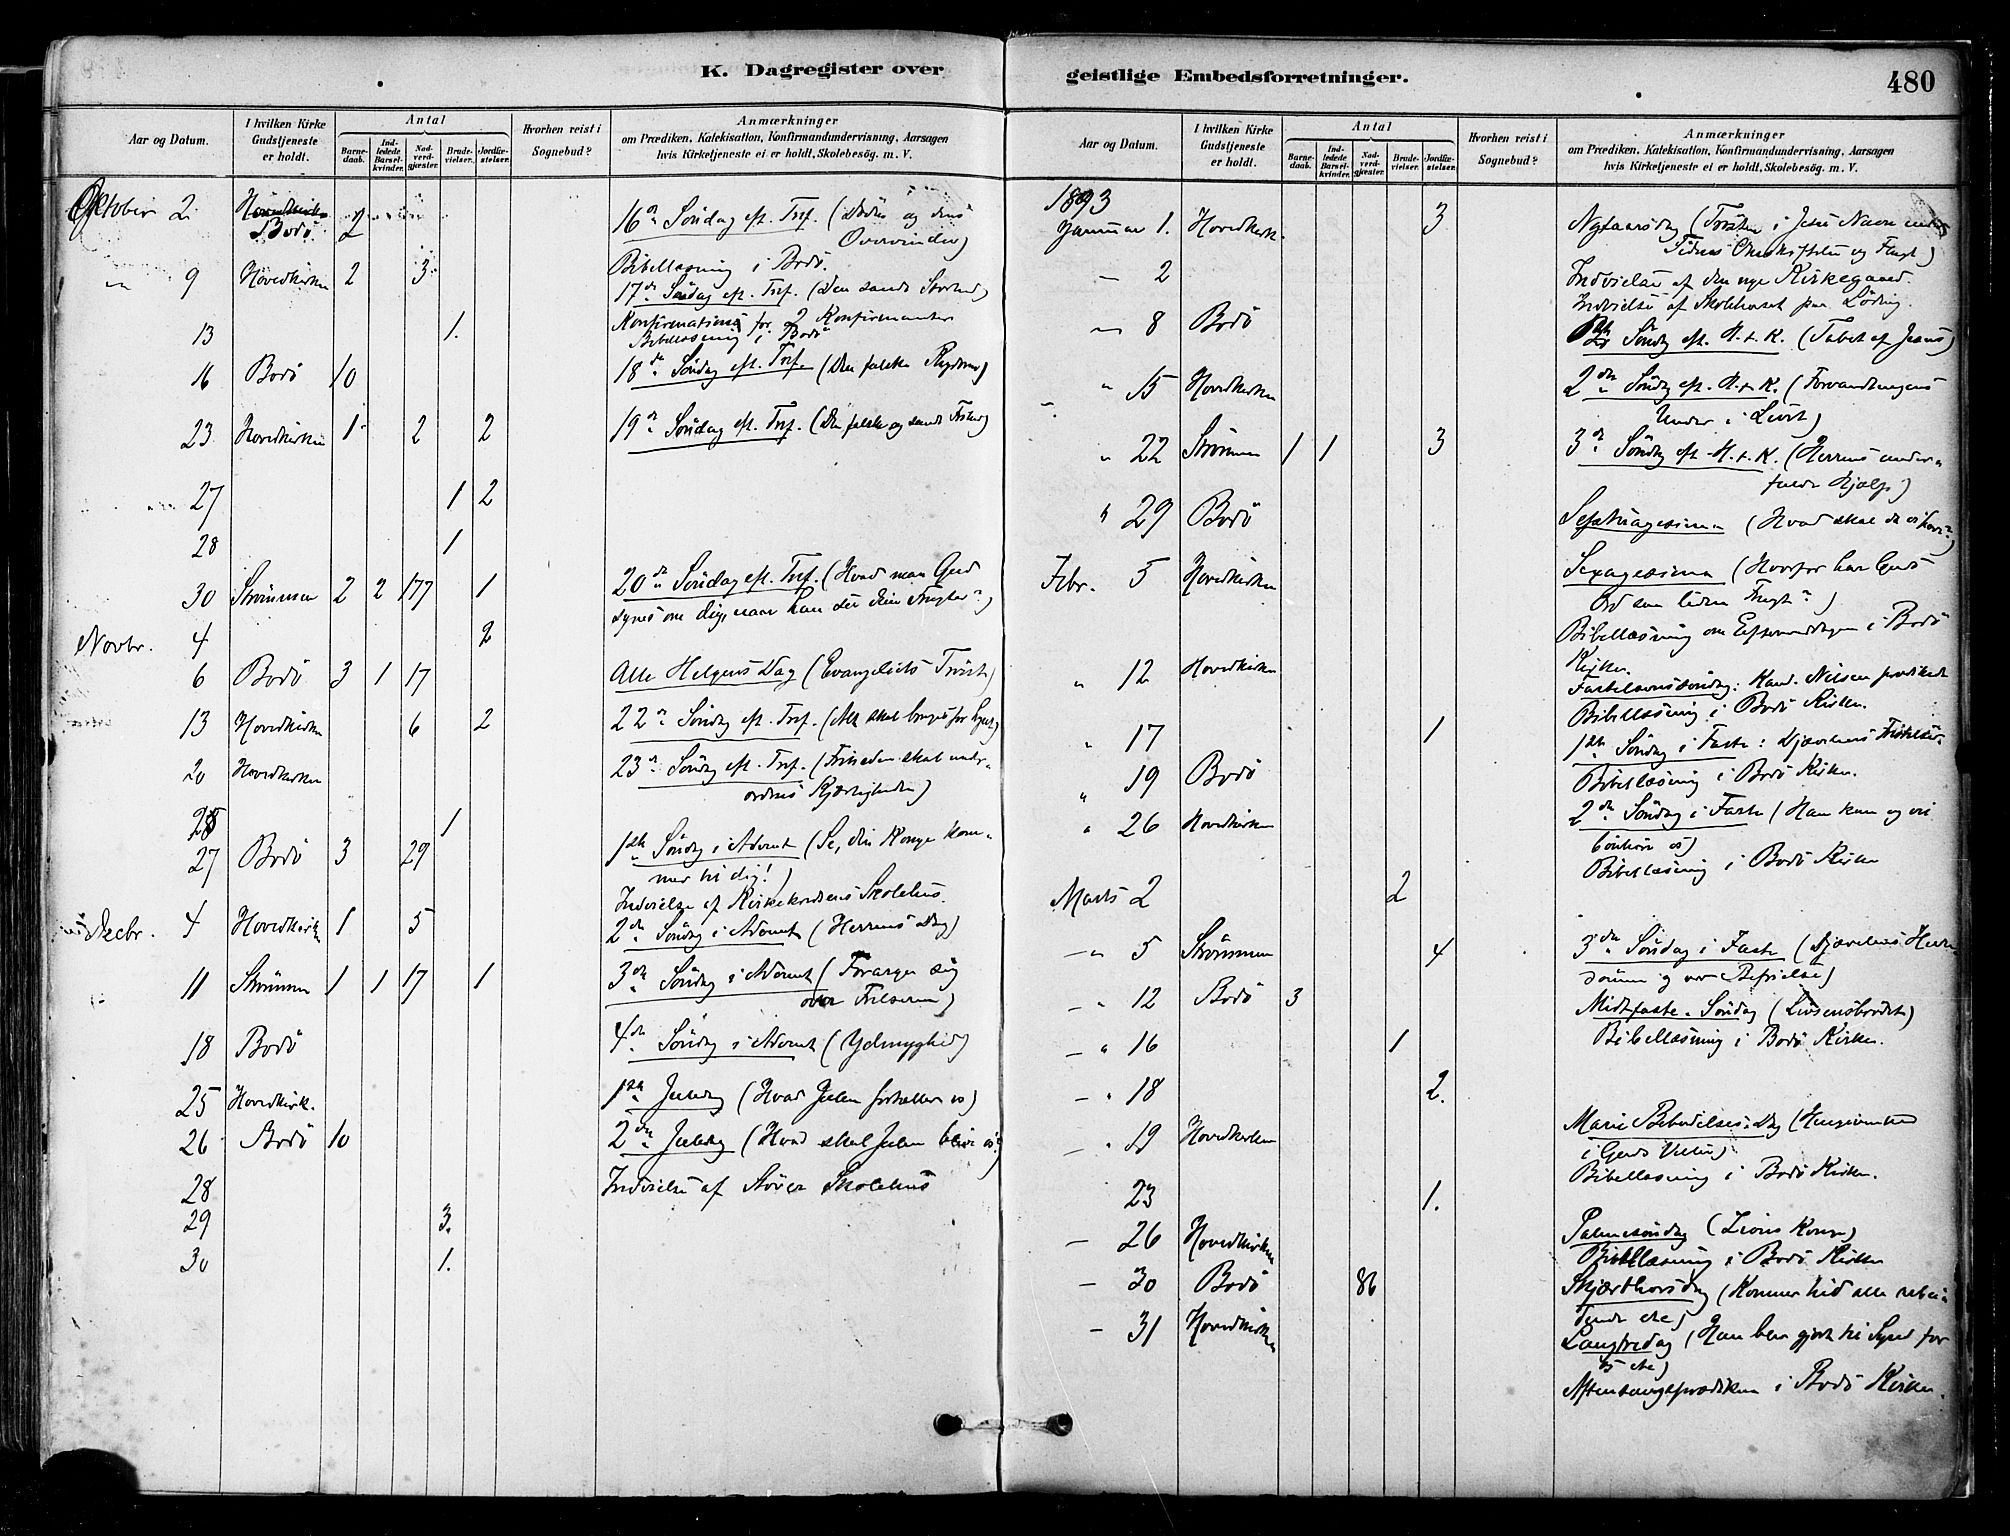 K. Dagregister over
geistlige Embedsforretninger.
480
Aar og Datum.
I hvilken Kirke Gudstjeneste er holdt.
Antal
Barnedaab.
Indledede Barselkvinder.
Nadverdgjæster.
Brudevielser.
Jordfæstelser.
Hvorhen reist i Sognebud?
Anmærkninger
om Prædiken, Katekisation, Konfirmandundervisning, Aarsagen
hvis Kirketjeneste ei er holdt, Skolebesög. m. V.
Oktober 2. Hovedkirke Bodö 2 16de Söndag eft. Tref. (Döden og dens
Overvinder)
Bibellæsning i Bodö.
" 9 Hovedkirken 2 3 17de Söndag eft. Tref. (Den sande Storhed)
Konfirmation for 2 Konfirmanter
13 1. Bibellæsning i Bodö
16 Bodö 10 18de Söndag eft. Tref. (Den falske Rigdom)
23 Hovedkirken 1 2 2 19de Söndag eft. Tref. (Den falske og sande Frihed)
27 1 2
28 1
30 Strömmen 2 2 177 1 20de Söndag eft. Tref. (Hvad man Gud
synes om dig, naar han ser dine Frugter?)
Novbr. 4 2
6 Bodö 3 1 17 Alle Helgens Dag (Evangeliets Tröst)
13 Hovedkirken 6 2 22de Söndag eft. Tref. (Alt skal bruges for
20 Hovedkirken 23de Söndag eft. Tref. (Friheden skal under-
ordnes Kjærligheden)
28 1
27 Bodö 3 29 1ste Söndag i Advent (Se, din Konge kom-
mer til dig!)
Indvielse af Kirkekredsens Skolehus.
Decbr. 4 Hovedkirken 1 5 2den Söndag i Advent (Herrens Dag)
11 Strömmen 1 1 17 1 3die Söndag i Advent (Forarger sig
over Frelseren)
18 Bodö 4de Söndag i Advent (Ydmyghed)
25 Hovedkirk. 1ste Juledag (Hvad Julen fortæller os)
26 Bodö 10 2den Juledag (Hvad skal Julen blive os?)
28 Indvielse af Skolehus
29 3.
30 1.
Aar og Datum.
I hvilken Kirke Gudstjeneste er holdt.
Antal
Barnedaab.
Indledede Barselkvinder.
Nadverdgjæster.
Brudevielser.
Jordfæstelser.
Hvorhen reist i Sognebud?
Anmærkninger
om Prædiken, Katekisation, Konfirmandundervisning, Aarsagen
hvis Kirketjeneste ei er holdt, Skolebesög. m. V.
1893
Januar 1. Hovedkirk. 3 Nytaarsdag (Trösten i Jesu Navn under
Tidens Omskiftelse og Flugt)
— 2 Indvielse af den nye Kirkegaard.
Indvielse af Skolehuset paa Löding.
— 8 Bodö Söndag eft. H. t. K. (Tabet af Jesus)
" 15 Hovedkirken 2den Söndag eft. H. t. K. (Forvandlingens
Under i Livet)
" 22 Strömmen 1 1 3 3die Söndag eft. H. t. K. (Herrens under-
fulde Hjælp)
" 29 Bodö Septuagesima (Hvad skal da vi have?)
Febr. 5 Hovedkirken Sexagesima (Hvorfor har Guds
Ord saa liden Frugt?)
Bibellæsning om Eftermiddagen i Bodö
Kirke.
" 12 Hovedkirken Fastelavnssöndag: Kand. Nilsen prædikede
Bibellæsning i Bodö Kirken.
" 17 1
" 19 Bodö 1ste Söndag i Faste: Djævelens Fristelser.
Bibellæsning i Bodö Kirken.
" 26 Hovedkirken 2den Söndag i Faste (Han kan og vil
bönhöre os)
Bibellæsning i Bodö Kirken
Marts 2 2
— " 5 Strömmen 4 3die Söndag i Faste (Djævelens Herre-
dömme og vor Befrielse)
— " 12 Bodö 3 Midtfaste-Söndag (Livsensbrödet)
Bibellæsning i Bodö Kirken.
— " 16 1
— " 18 2.
— " 19 Hovedkirken Marie Bebudelses-Dag (Hengivenhed
i Guds Vilie)
Bibellæsning i Bodö Kirken.
23 1.
— 26 Hovedkirken Palmesöndag (Zions Konge)
Bibellæsning i Bodö Kirken
— 30 Bodö 86 Skjærthorsdag (Kommer hid alle arbei-
dende etc)
— 31 Hovedkirken Langfredag (Han blev gjort til Synd for
os etc)
Aftensangsprædiken i Bodö Kirken.